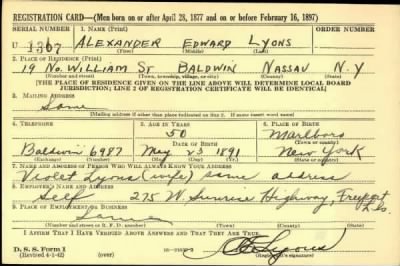 REGISTRATION CARD—(Men born on or after April 28, 1877 and on or before February 16, 1897)
SERIAL NUMBER 1. NAME (Print) ORDER NUMBER
U 1367 ALEXANDER EDWARD LYONS
(First) (Middle) (Last)
2. PLACE OF RESIDENCE (Print)
19 No. WILLIAM ST BALDWIN NASSAU N.Y
(Number and street) (Town, township, village, or city) (County) (State)
[THE PLACE OF RESIDENCE GIVEN ON THE LINE ABOVE WILL DETERMINE LOCAL BOARD
JURISDICTION; LINE 2 OF REGISTRATION CERTIFICATE WILL BE IDENTICAL]
3. MAILING ADDRESS
Same
[Mailing address if other than place indicated on line 2. If same insert word same]
4. TELEPHONE 5. AGE IN YEARS 6. PLACE OF BIRTH
50 Marlboro
DATE OF BIRTH (Town or county)
Baldwin 6987 May 23 1891 New York
(Exchange) (Number) (Mo.) (Day) (Yr.) (State or country)
7. NAME AND ADDRESS OF PERSON WHO WILL ALWAYS KNOW YOUR ADDRESS
Violet Lyons (wife) same address
8. EMPLOYER'S NAME AND ADDRESS
Self 275 W. Sunrise Highway, Freeport
9. PLACE OF EMPLOYMENT OR BUSINESS
Same
(Number and street or R. F. D. number) (Town) (County) (State)
I AFFIRM THAT I HAVE VERIFIED ABOVE ANSWERS AND THAT THEY ARE TRUE.
D. S. S. Form 1
(Revised 4-1-42) (over) Lyons
(Registrant's signature)